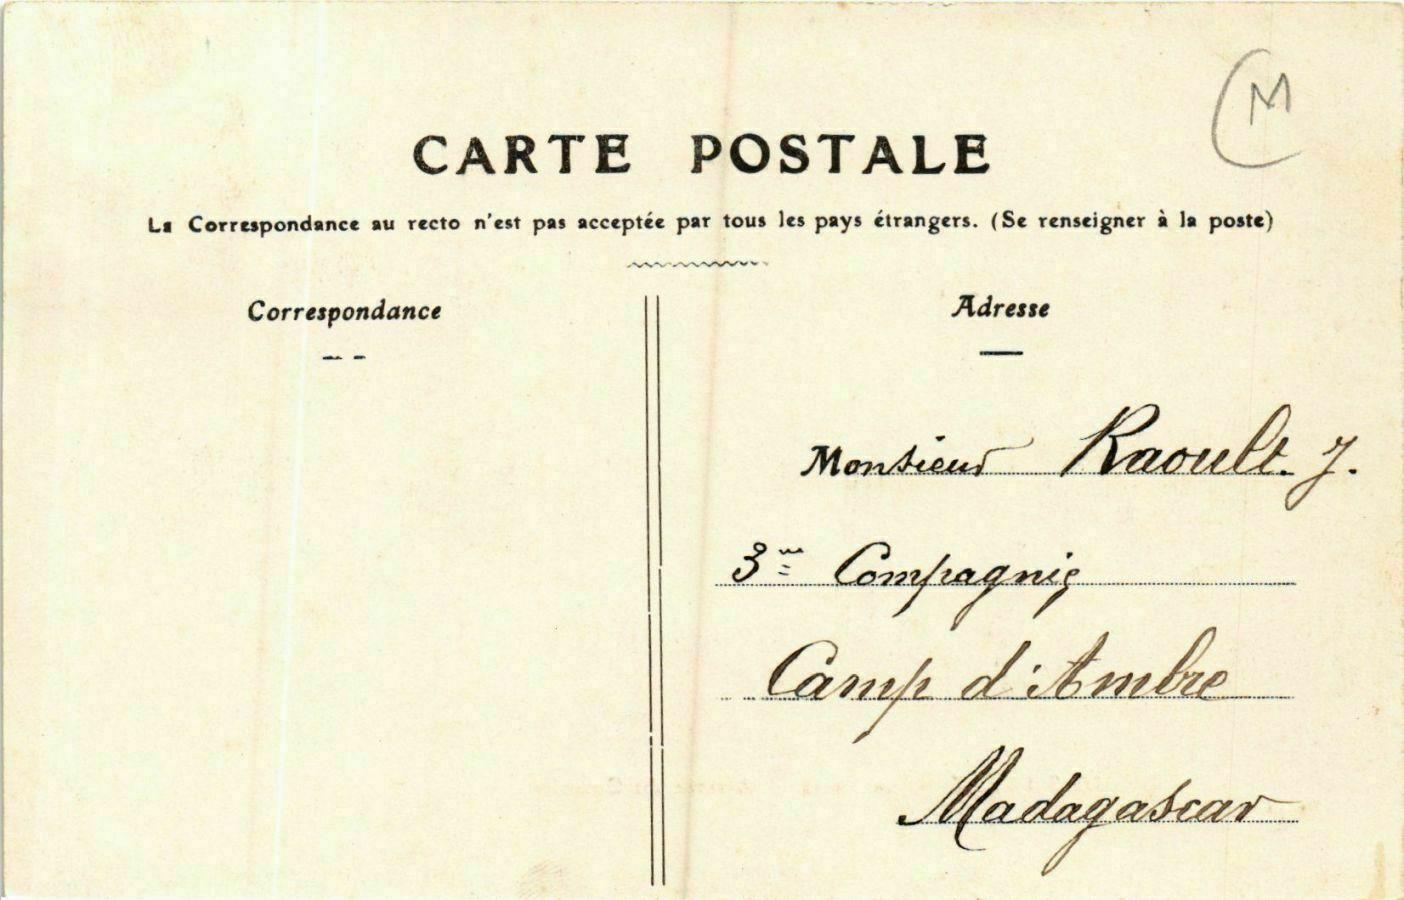 M
CARTE POSTALE
La Correspondance au recto n'est pas acceptée par tous les pays étrangers. (Se renseigner à la poste)
Correspondance
Adresse
Monsieur Raoult. J.
3me Compagnie
Camp d'Ambre
Madagascar